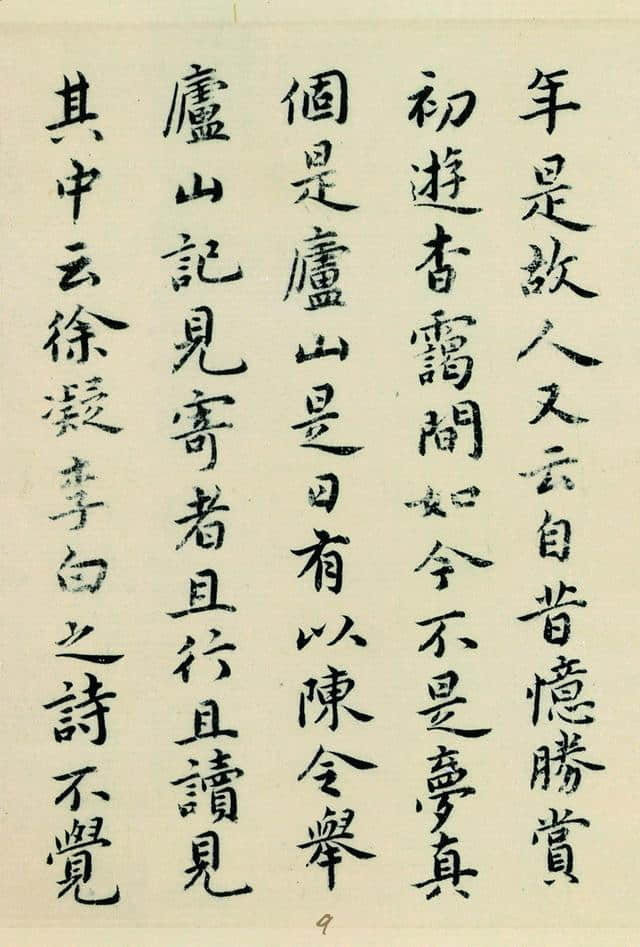 年是故人又云自昔憶勝賞
初遊杳靄間如今不是夢真
個是廬山是日有以陳令舉
廬山記見寄者且行且讀見
其中云徐凝李白之詩不覺
9